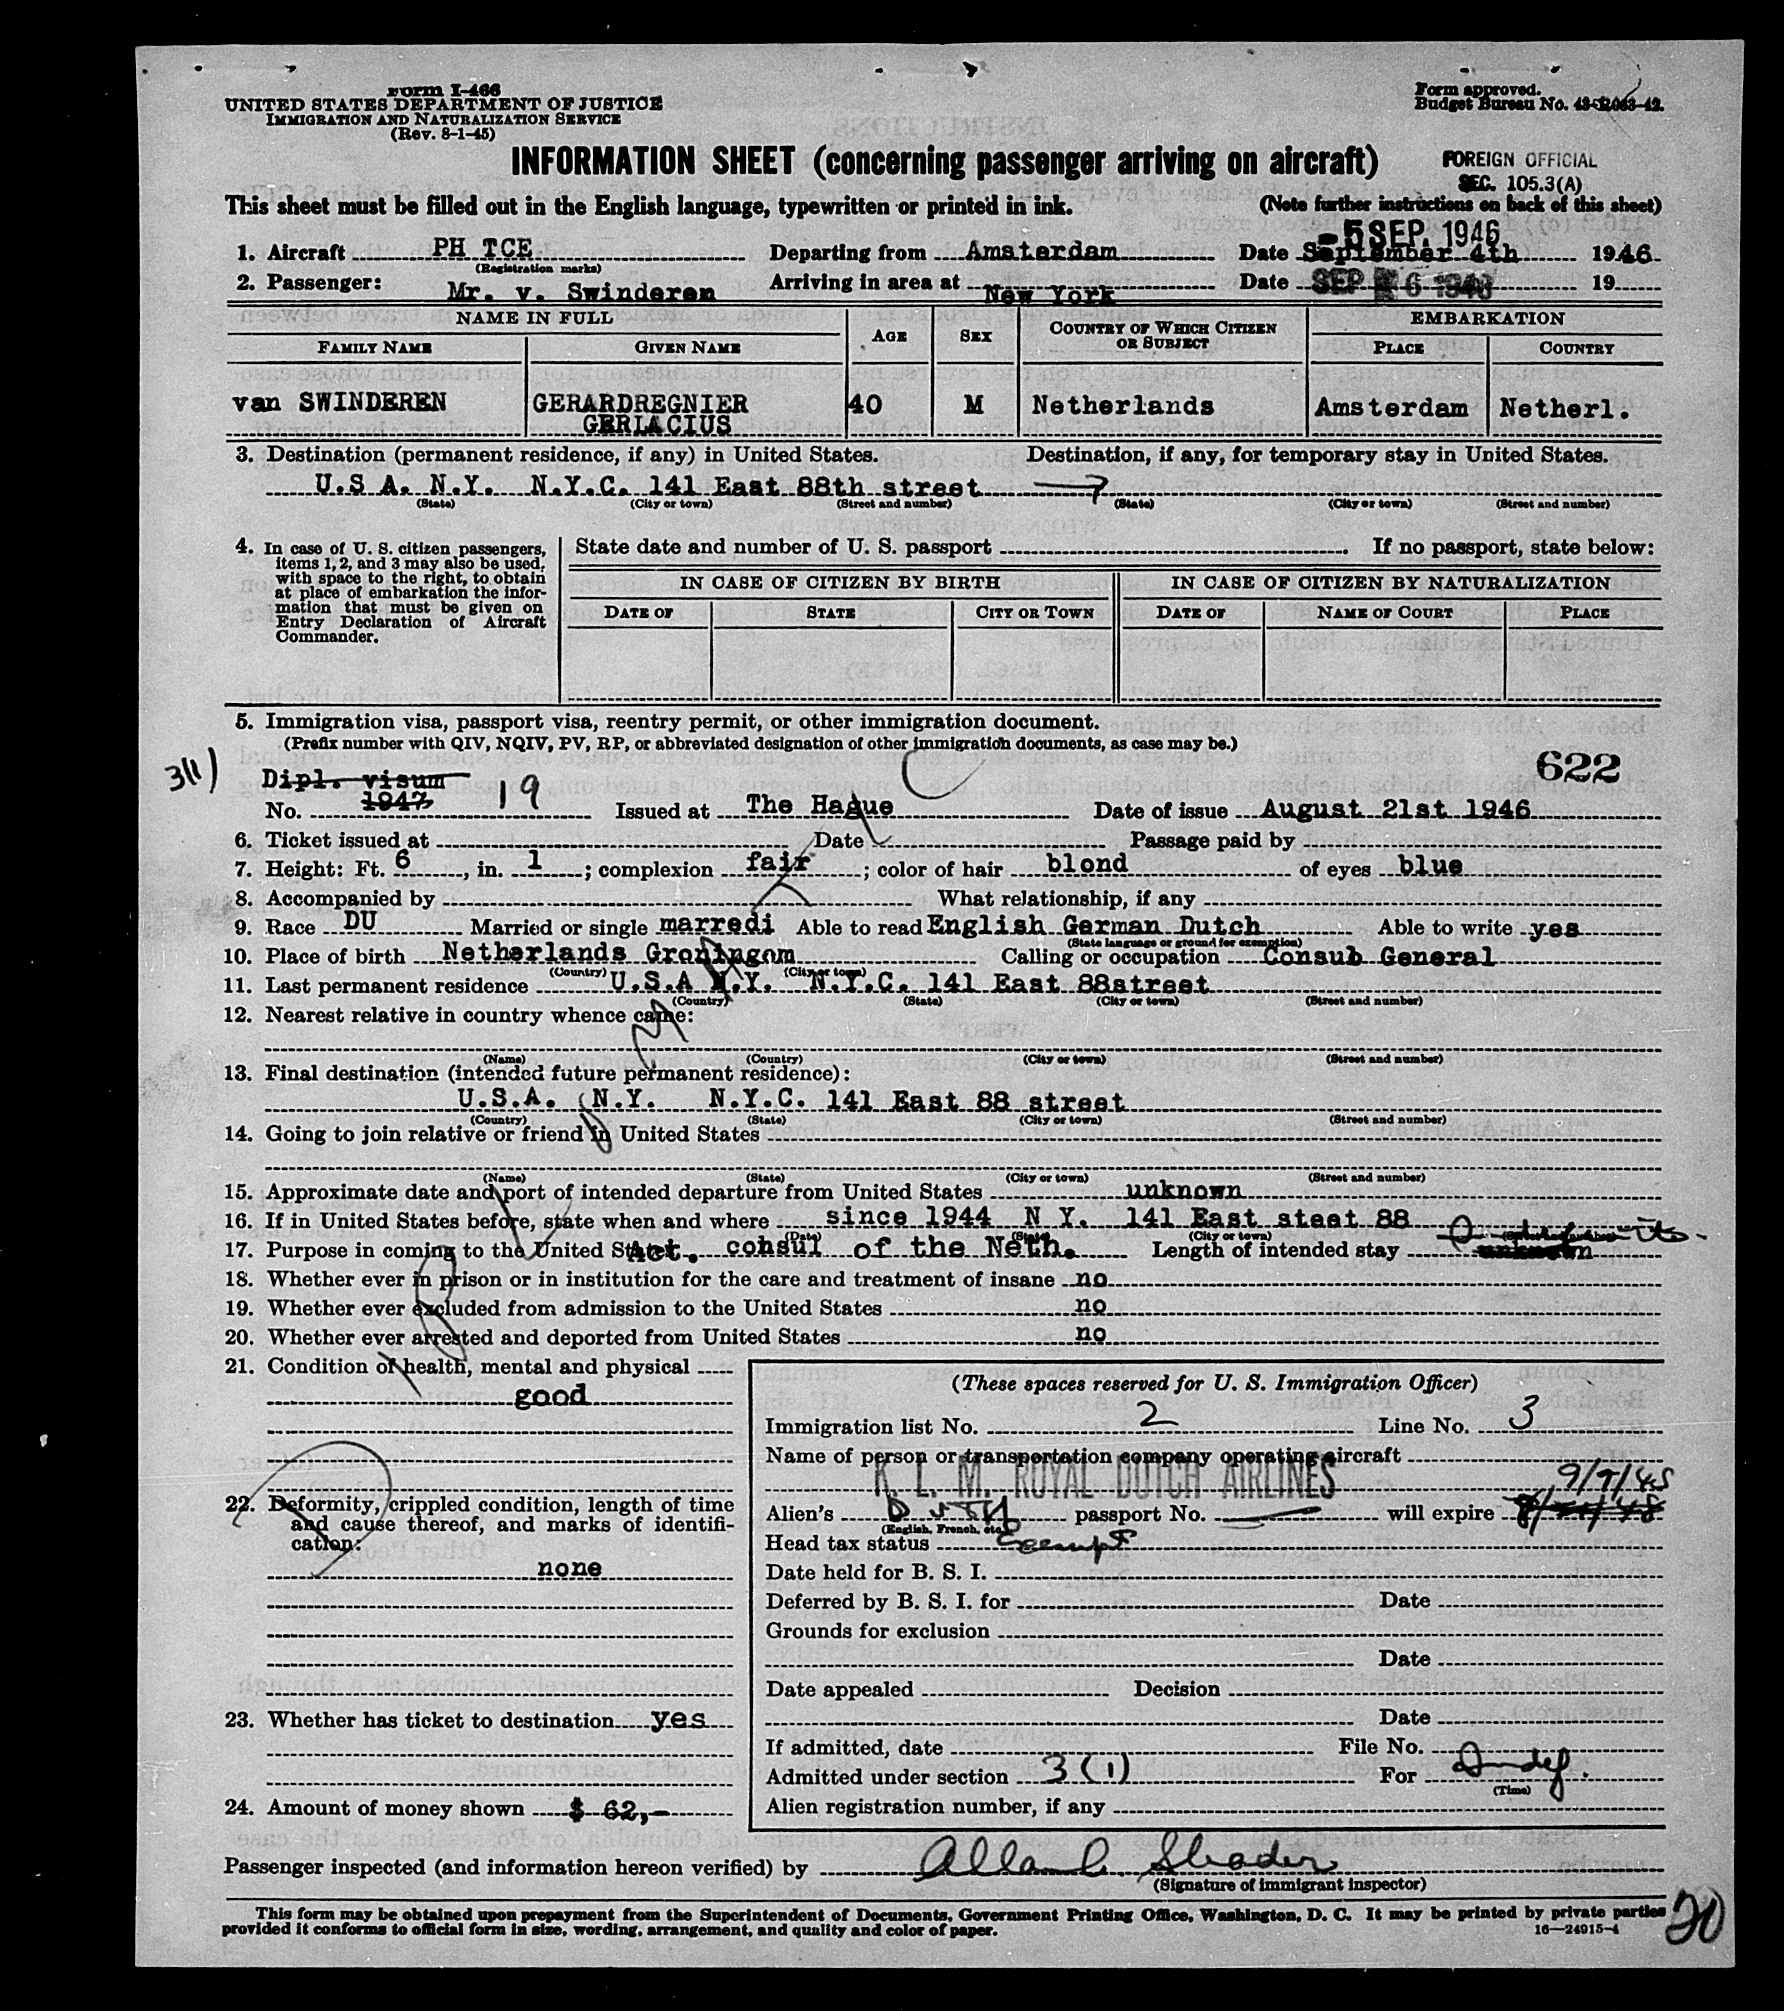 Form I-466
UNITED STATES DEPARTMENT OF JUSTICE
IMMIGRATION AND NATURALIZATION SERVICE
(Rev. 8-1-45)
Form approved.
Budget Bureau No.
INFORMATION SHEET (concerning passenger arriving on aircraft)
FOREIGN OFFICIAL
SEC. 105.3(A)
This sheet must be filled out in the English language, typewritten or printed in ink.
(Note further instructions on back of this sheet)
- 5 SEP. 1946
1. Aircraft PH TCE Departing from Amsterdam Date September 4th 1946.
(Registration marks)
2. Passenger: Mr. v. Swinderen Arriving in area at New York Date SEP 6 1946 19
NAME IN FULL AGE SEX COUNTRY OF WHICH CITIZEN OR SUBJECT EMBARKATION
FAMILY NAME GIVEN NAME PLACE COUNTRY
van SWINDEREN GERARDREGNIER 40 M Netherlands Amsterdam Netherl.
GERLACIUS
3. Destination (permanent residence, if any) in United States. Destination, if any, for temporary stay in United States.
U.S A. N.Y. N.Y.C. 141 East 88th street
(State) (City or town) (Street and number) (State) (City or town) (Street and number)
4. In case of U. S. citizen passengers, items 1, 2, and 3 may also be used, with space to the right, to obtain at place of embarkation the information that must be given on Entry Declaration of Aircraft Commander.
State date and number of U. S. passport . If no passport, state below:
IN CASE OF CITIZEN BY BIRTH IN CASE OF CITIZEN BY NATURALIZATION
DATE OF STATE CITY OR TOWN DATE OF NAME OF COURT PLACE
5. Immigration visa, passport visa, reentry permit, or other immigration document.
(Prefix number with QIV, NQIV, PV, RP, or abbreviated designation of other immigration documents, as case may be.)
622
3(1)
Dipl. visum
No. 1947 19 Issued at The Hague Date of issue August 21st 1946
6. Ticket issued at Date Passage paid by
7. Height: Ft. 6, in. 1; complexion fair; color of hair blond of eyes blue
8. Accompanied by What relationship, if any
9. Race DU Married or single marredi Able to read English German Dutch Able to write yes
(State language or ground for exemption)
10. Place of birth Netherlands Groningem Calling or occupation Consub General
(Country) (City or town)
11. Last permanent residence U.S.A N.Y. N.Y.C. 141 East 88street
(Country) (State) (City or town) (Street and number)
12. Nearest relative in country whence came:
(Name) (Country) (City or town) (Street and number)
13. Final destination (intended future permanent residence):
U.S.A. N.Y. N.Y.C. 141 East 88 street
(Country) (State) (City or town) (Street and number)
14. Going to join relative or friend in United States
(Name) (State) (City or town) (Street and number)
15. Approximate date and port of intended departure from United States unknown
16. If in United States before, state when and where since 1944 N Y. 141 East steet 88
(Date) (State) (City or town) (Street and number)
17. Purpose in coming to the United States Act. consul of the Neth. Length of intended stay unknown
18. Whether ever in prison or in institution for the care and treatment of insane no
19. Whether ever excluded from admission to the United States no
20. Whether ever arrested and deported from United States no
21. Condition of health, mental and physical
good
22. Deformity, crippled condition, length of time and cause thereof, and marks of identification:
none
23. Whether has ticket to destination yes
24. Amount of money shown $ 62,-
(These spaces reserved for U. S. Immigration Officer)
Immigration list No. 2 Line No. 3
Name of person or transportation company operating aircraft
K. L. M. ROYAL DUTCH AIRLINES
9/9/48
Alien's DUTCH passport No. — will expire
(English, French, etc.)
Head tax status Exempt
Date held for B. S. I.
Deferred by B. S. I. for Date
Grounds for exclusion
Date
Date appealed Decision
Date
If admitted, date File No.
Admitted under section 3(1) For Indef.
(Time)
Alien registration number, if any
Passenger inspected (and information hereon verified) by
(Signature of immigrant inspector)
This form may be obtained upon prepayment from the Superintendent of Documents, Government Printing Office, Washington, D. C. It may be printed by private parties
provided it conforms to official form in size, wording, arrangement, and quality and color of paper.
16—24915-4
20